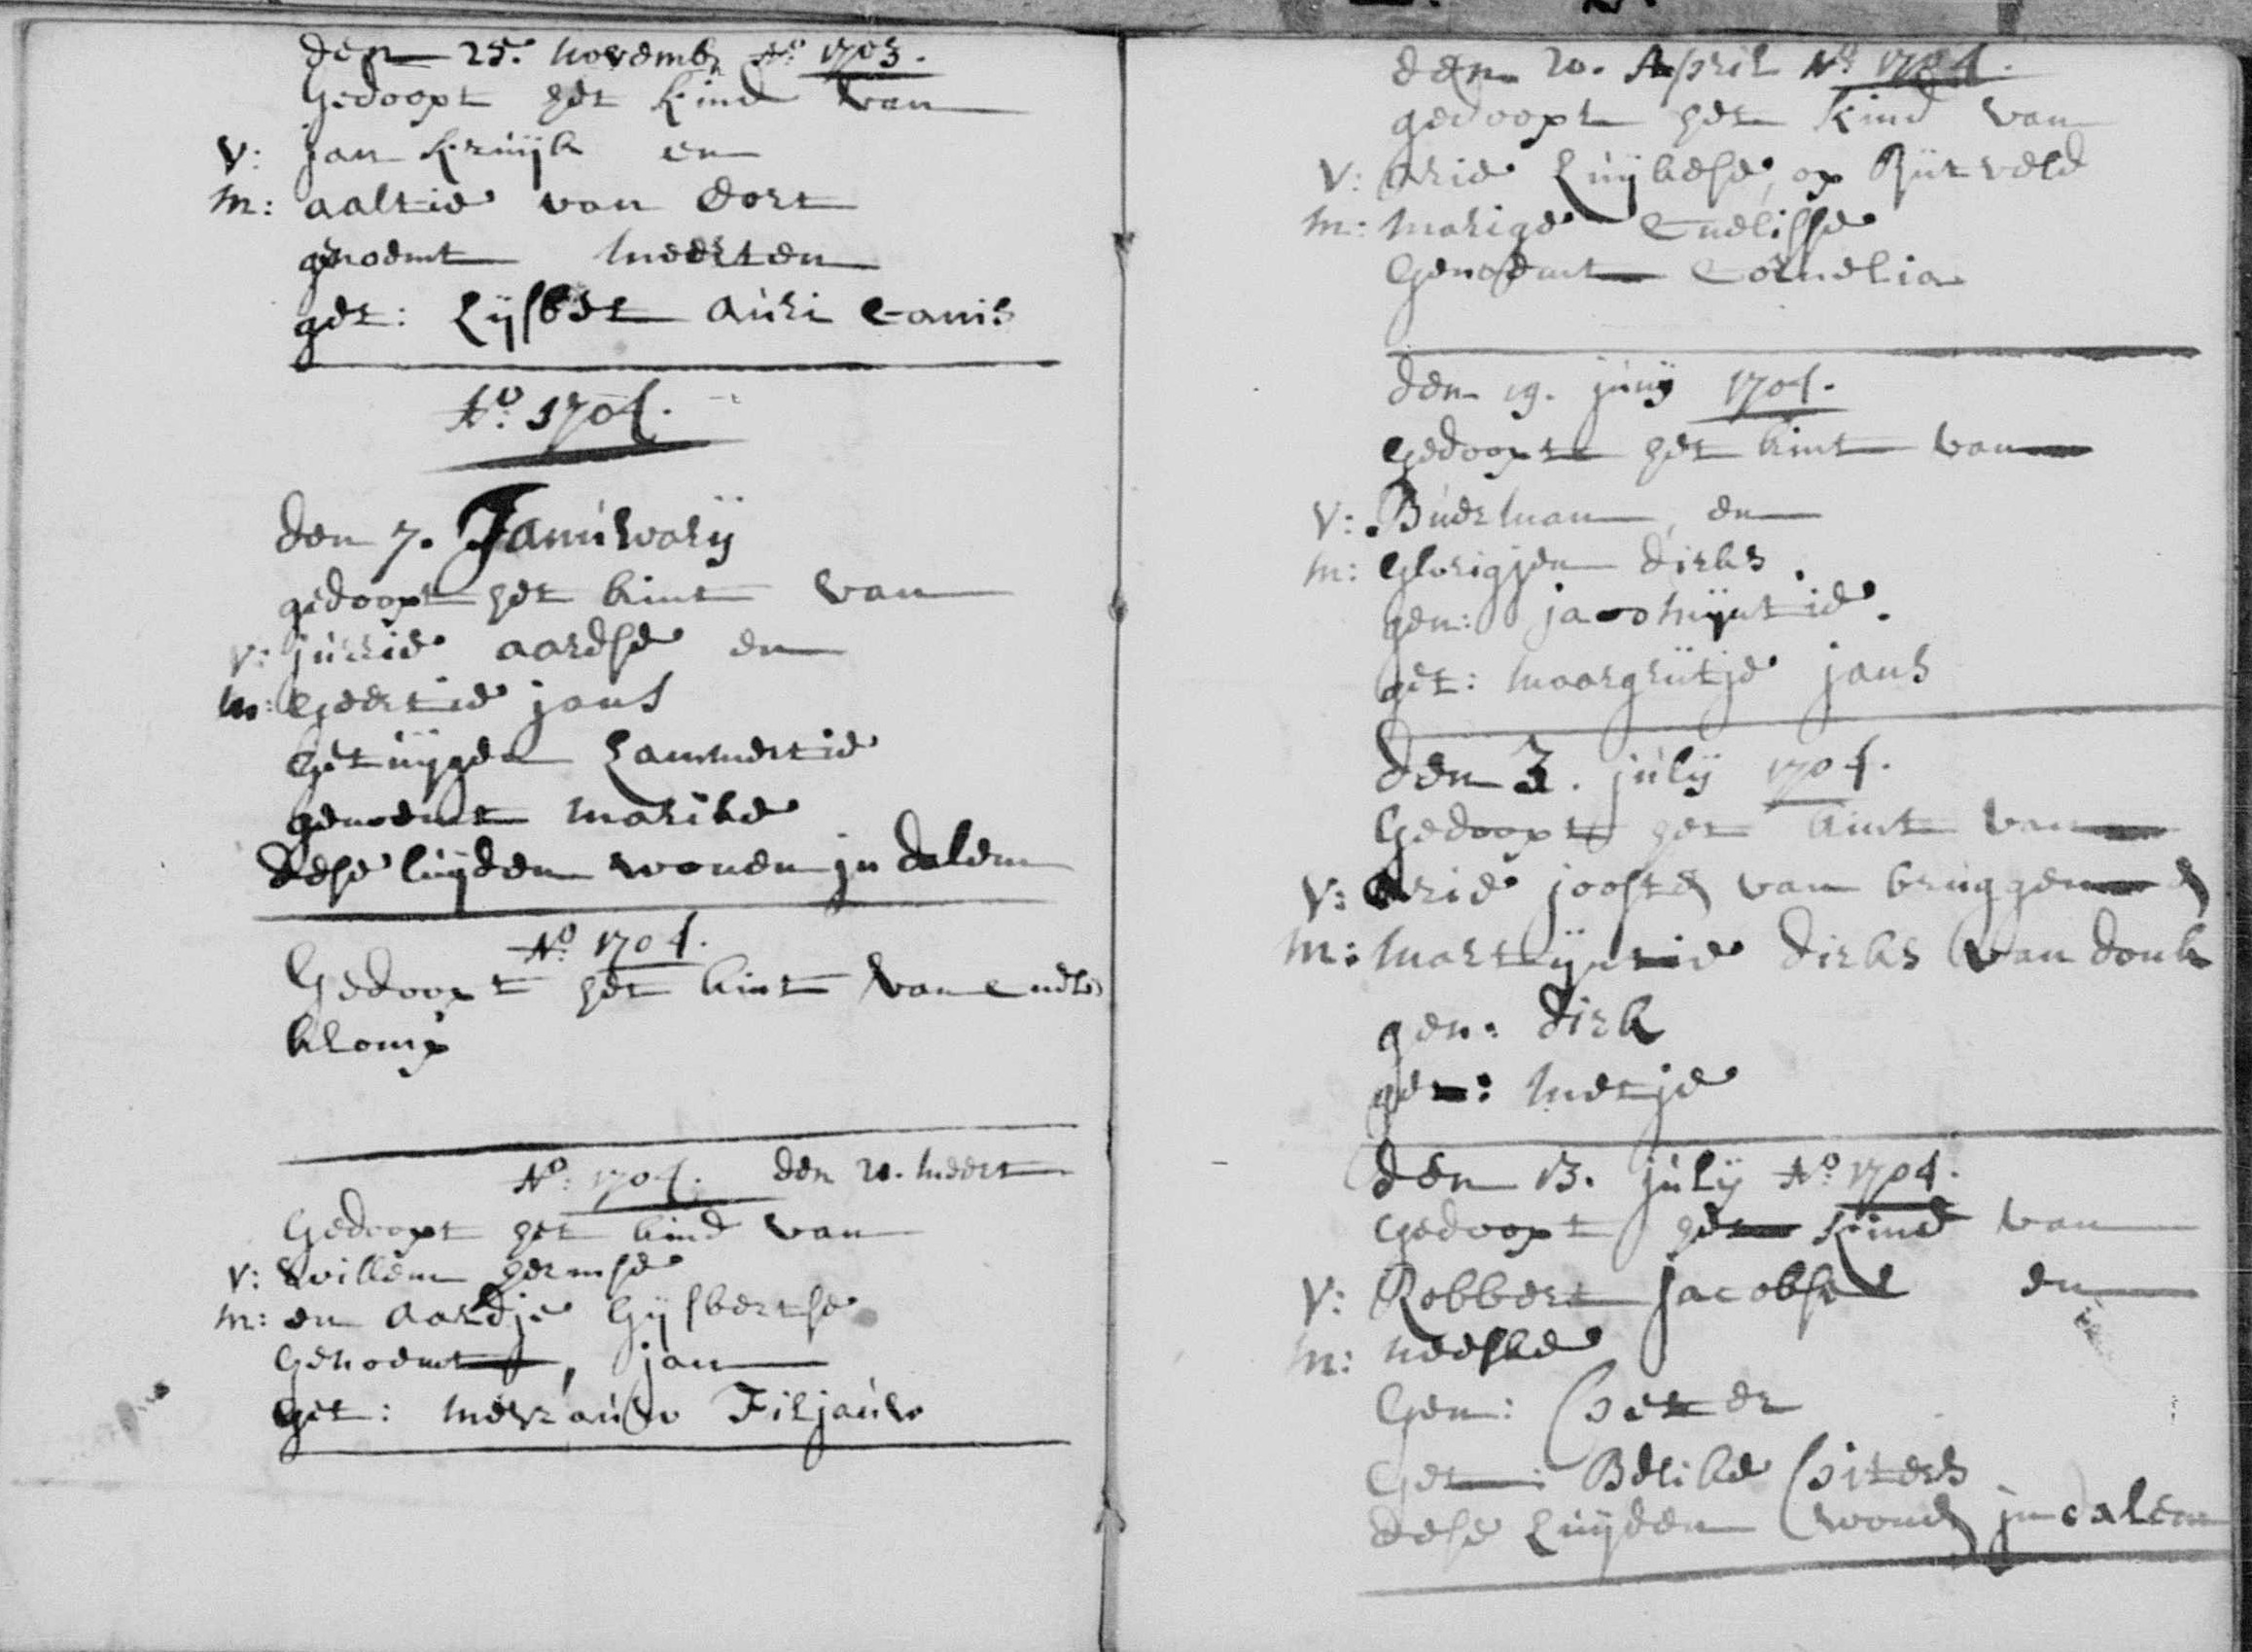 den 25. novemb Ao. 1703.
Gedoopt het kind van
V: jan kruijk en
m: aaltie van dort
genoemt meerten
get: Lijsbet
Ao. 1704.
den 7. Janúwarij
gedoopt het kint van
V: júrrie aardse en
m: geertie jans
getuijgen Lammertie
genoemt marike
dese luijden wonen jn dalem
Ao. 1704.
Gedoopt het kint van
klomp
Ao. 1704. den 20. meert
Gedoopt het kind van
V: willem hermse
m: en aardje Gijsbertse
Genoemt, jan
get:
den 20. April Ao. 1704.
gedoopt het kind van
V: arie Luijkese, op
m: marige Cnelisse
Genoemt Cornelia
den 19. júnij 1704.
gedoopt het kint van
V: Búerman, en
m: glorigjen dirks.
gen: jacomijntie.
get: maargrietje jans
den 3. júlij 1704.
Gedoopt het kint van
V: arie jooste van brúggen en
m: martijntie dirks van donk
gen: dirk
get: metje
den 13. júlij Ao. 1704.
Gedoopt het kind van
V: Robbert jacobse en
m: neeske
Gen: pieter
Get: Belike piters
dese luijden wonen jn dalem